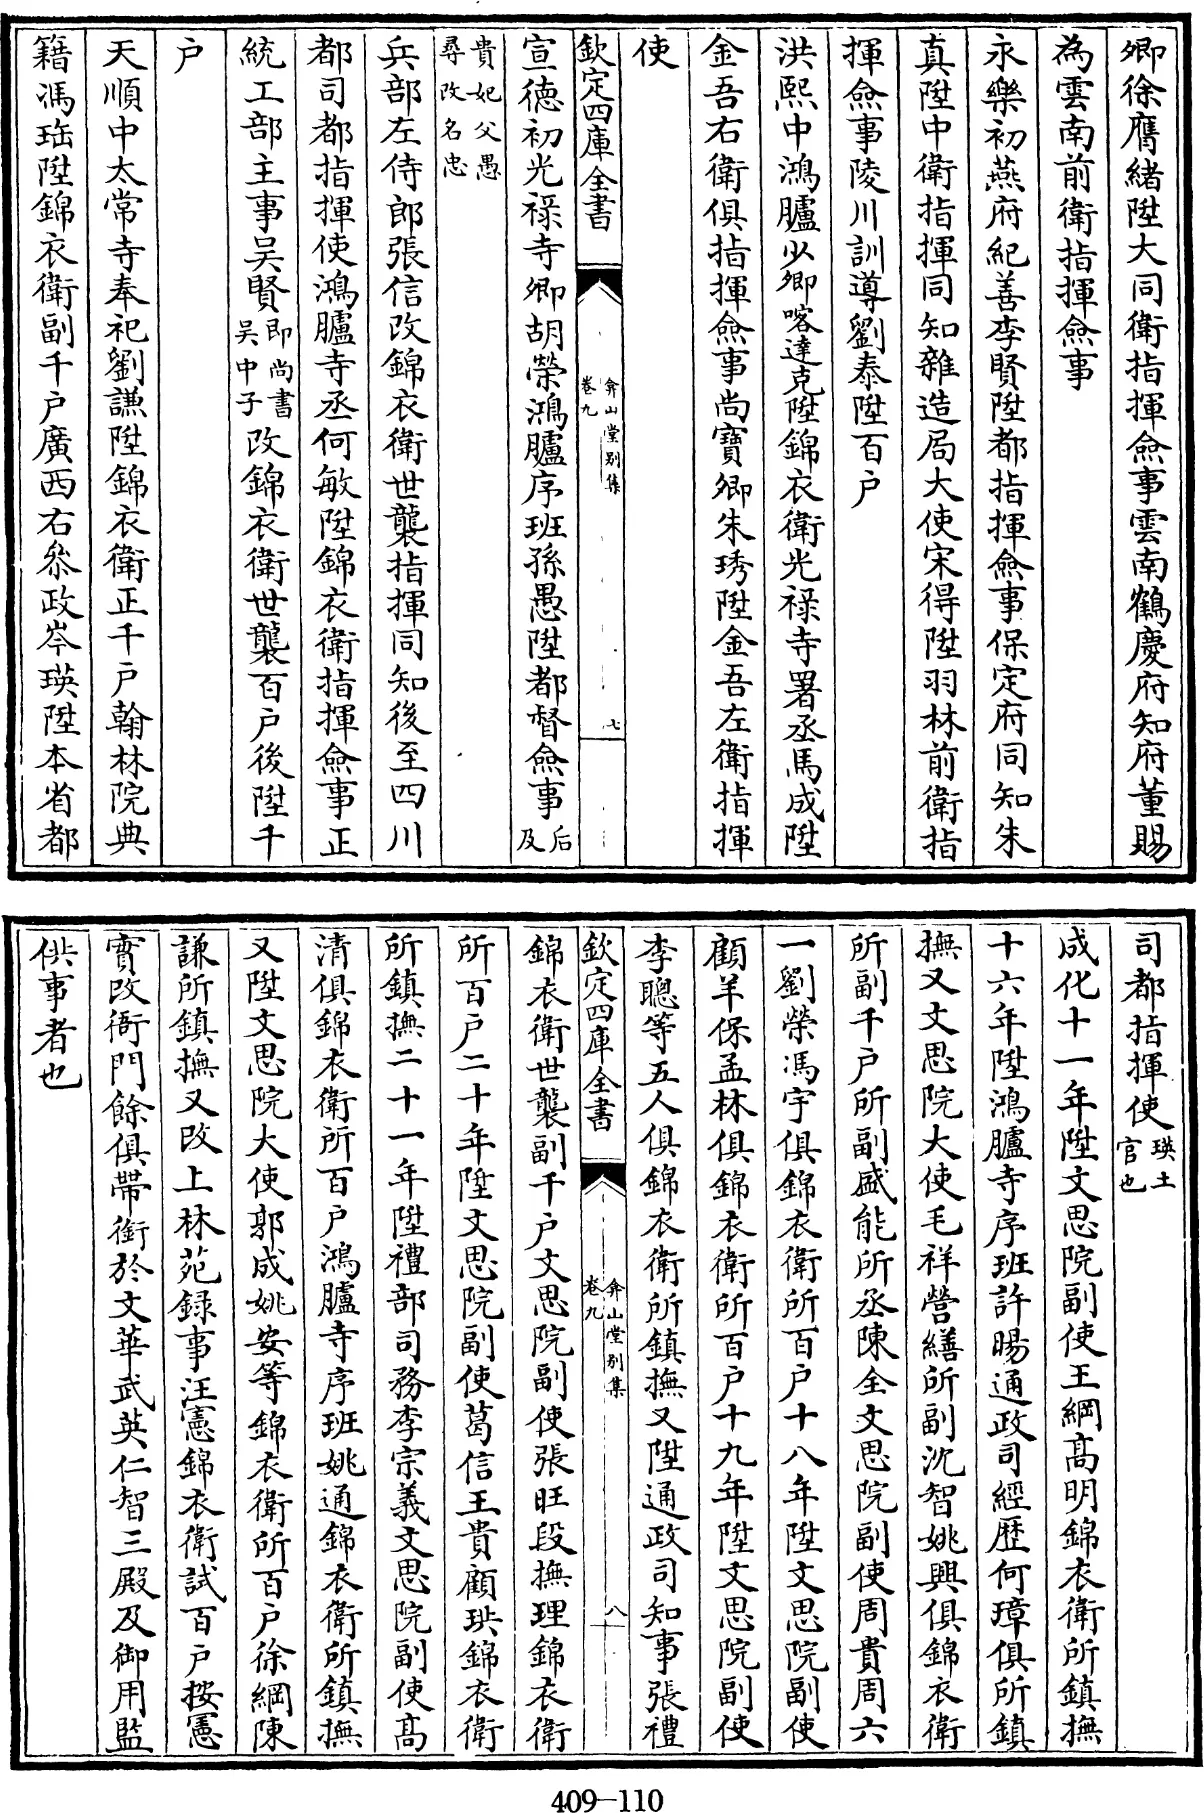 卿徐膺緒陞大同衛指揮僉事雲南鶴慶府知府董賜
為雲南前衛指揮僉事
永樂初燕府紀善李賢陞都指揮僉事保定府同知朱
真陞中衛指揮同知雜造局大使宋得陞羽林前衛指
揮僉事陵川訓導劉泰陞百户
洪熙中鴻臚少卿喀達克陞錦衣衛光禄寺署丞馬成陞
金吾右衛俱指揮僉事尚寶卿朱琇陞金吾左衛指揮
使
欽定四庫全書
弇山堂别集
卷九
七
宣德初光禄寺卿胡榮鴻臚序班孫愚陞都督僉事后及
貴妃父愚
尋改名忠
兵部左侍郎張信改錦衣衛世襲指揮同知後至四川
都司都指揮使鴻臚寺丞何敏陞錦衣衛指揮僉事正
統工部主事吴賢即尚書吴中子改錦衣衛世襲百户後陞千
户
天順中太常寺奉祀劉謙陞錦衣衛正千户翰林院典
籍馮珤陞錦衣衛副千户廣西右叅政岑瑛陞本省都
司都指揮使瑛土官也
成化十一年陞文思院副使王綱高明錦衣衛所鎮撫
十六年陞鴻臚寺序班許暘通政司經歷何璋俱所鎮
撫又文思院大使毛祥營繕所副沈智姚興俱錦衣衛
所副千户所副盛能所丞陳全文思院副使周貴周六
一劉榮馮宇俱錦衣衛所百户十八年陞文思院副使
顧羊保孟林俱錦衣衛所百户十九年陞文思院副使
李聰等五人俱錦衣衛所鎮撫又陞通政司知事張禮
欽定四庫全書
弇山堂别集
卷九
八
錦衣衛世襲副千户文思院副使張旺段撫理錦衣衛
所百户二十年陞文思院副使葛信王貴顧珙錦衣衛
所鎮撫二十一年陞禮部司務李宗義文思院副使高
清俱錦衣衛所百户鴻臚寺序班姚通錦衣衛所鎮撫
又陞文思院大使郭成姚安等錦衣衛所百户徐綱陳
謙所鎮撫又改上林苑録事汪憲錦衣衛試百户按憲
實改衙門餘俱帶銜於文華武英仁智三殿及御用監
供事者也
409—110